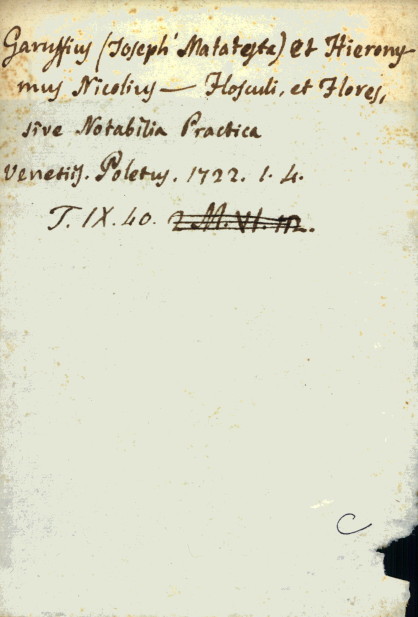 Garuffius (Joseph' Malatesta) et Hierony
mus Nicolius — Flosculi, et Flores,
sive Notabilia Practica
Venetiis. Poletus. 1722. 1. 4.
T. IX. 40. 2. M. VI. 112.
C